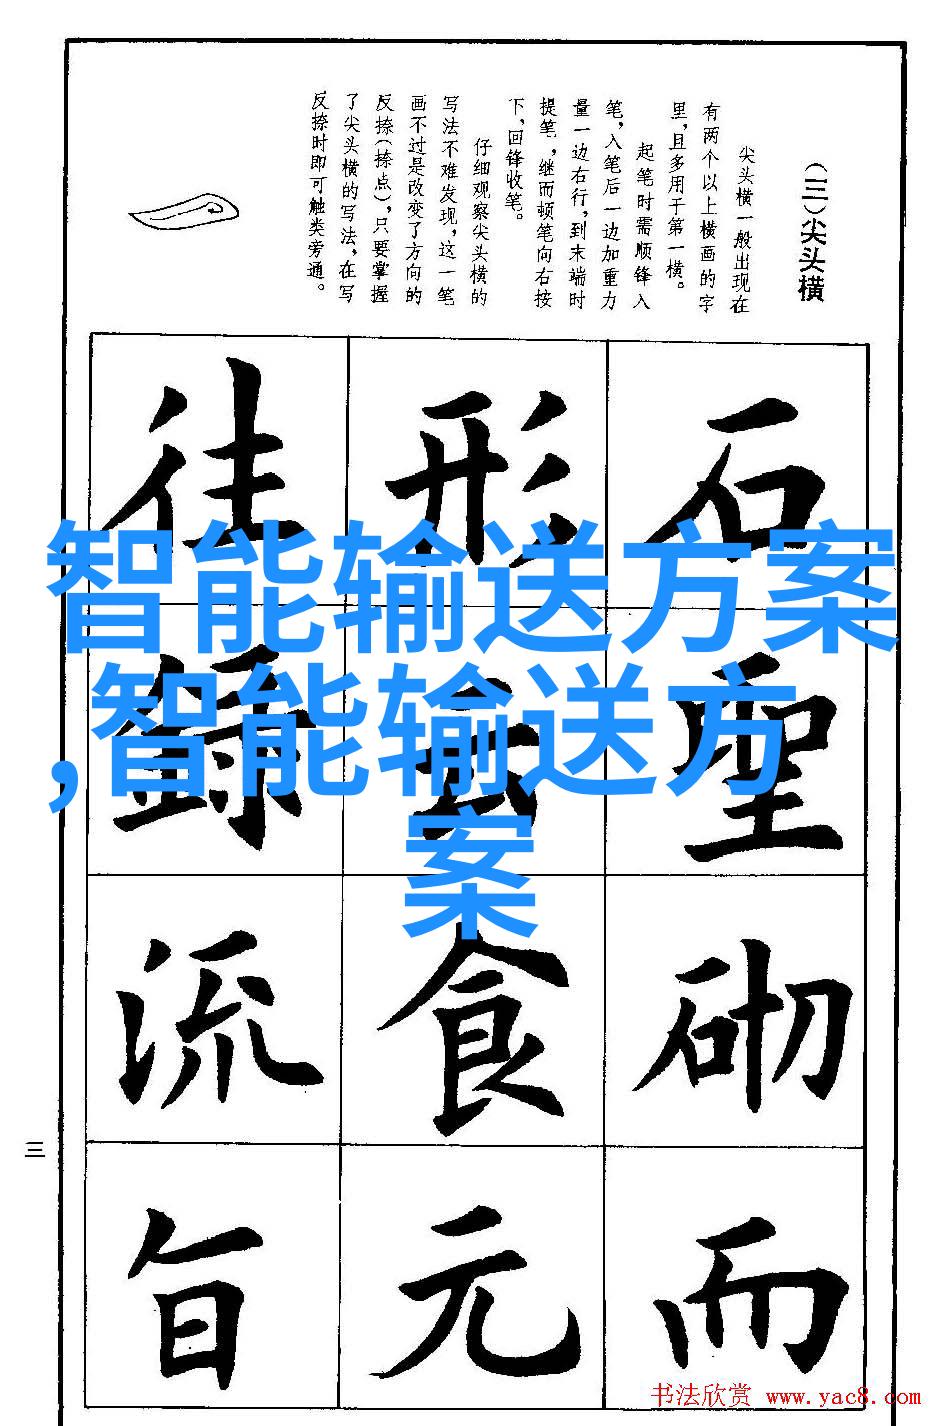 (三)尖头横
尖头横一般出现在
有两个以上横画的字
里,且多用于第一横。
起笔时需顺锋入
笔,入笔后一边加重力
量一边右行,到末端时
提笔,继而顿笔向右按
下,回锋收笔。
仔细观察尖头横的
写法不难发现,这一笔
画不过是改变了方向的
反捺(捺点),只要掌握
了尖头横的写法,在写
反捺时即可触类旁通。
石聖砌而
形云食元
往録流旨
智能输送方案
,智能输送方
案
三
书法欣赏 www.yac8.com